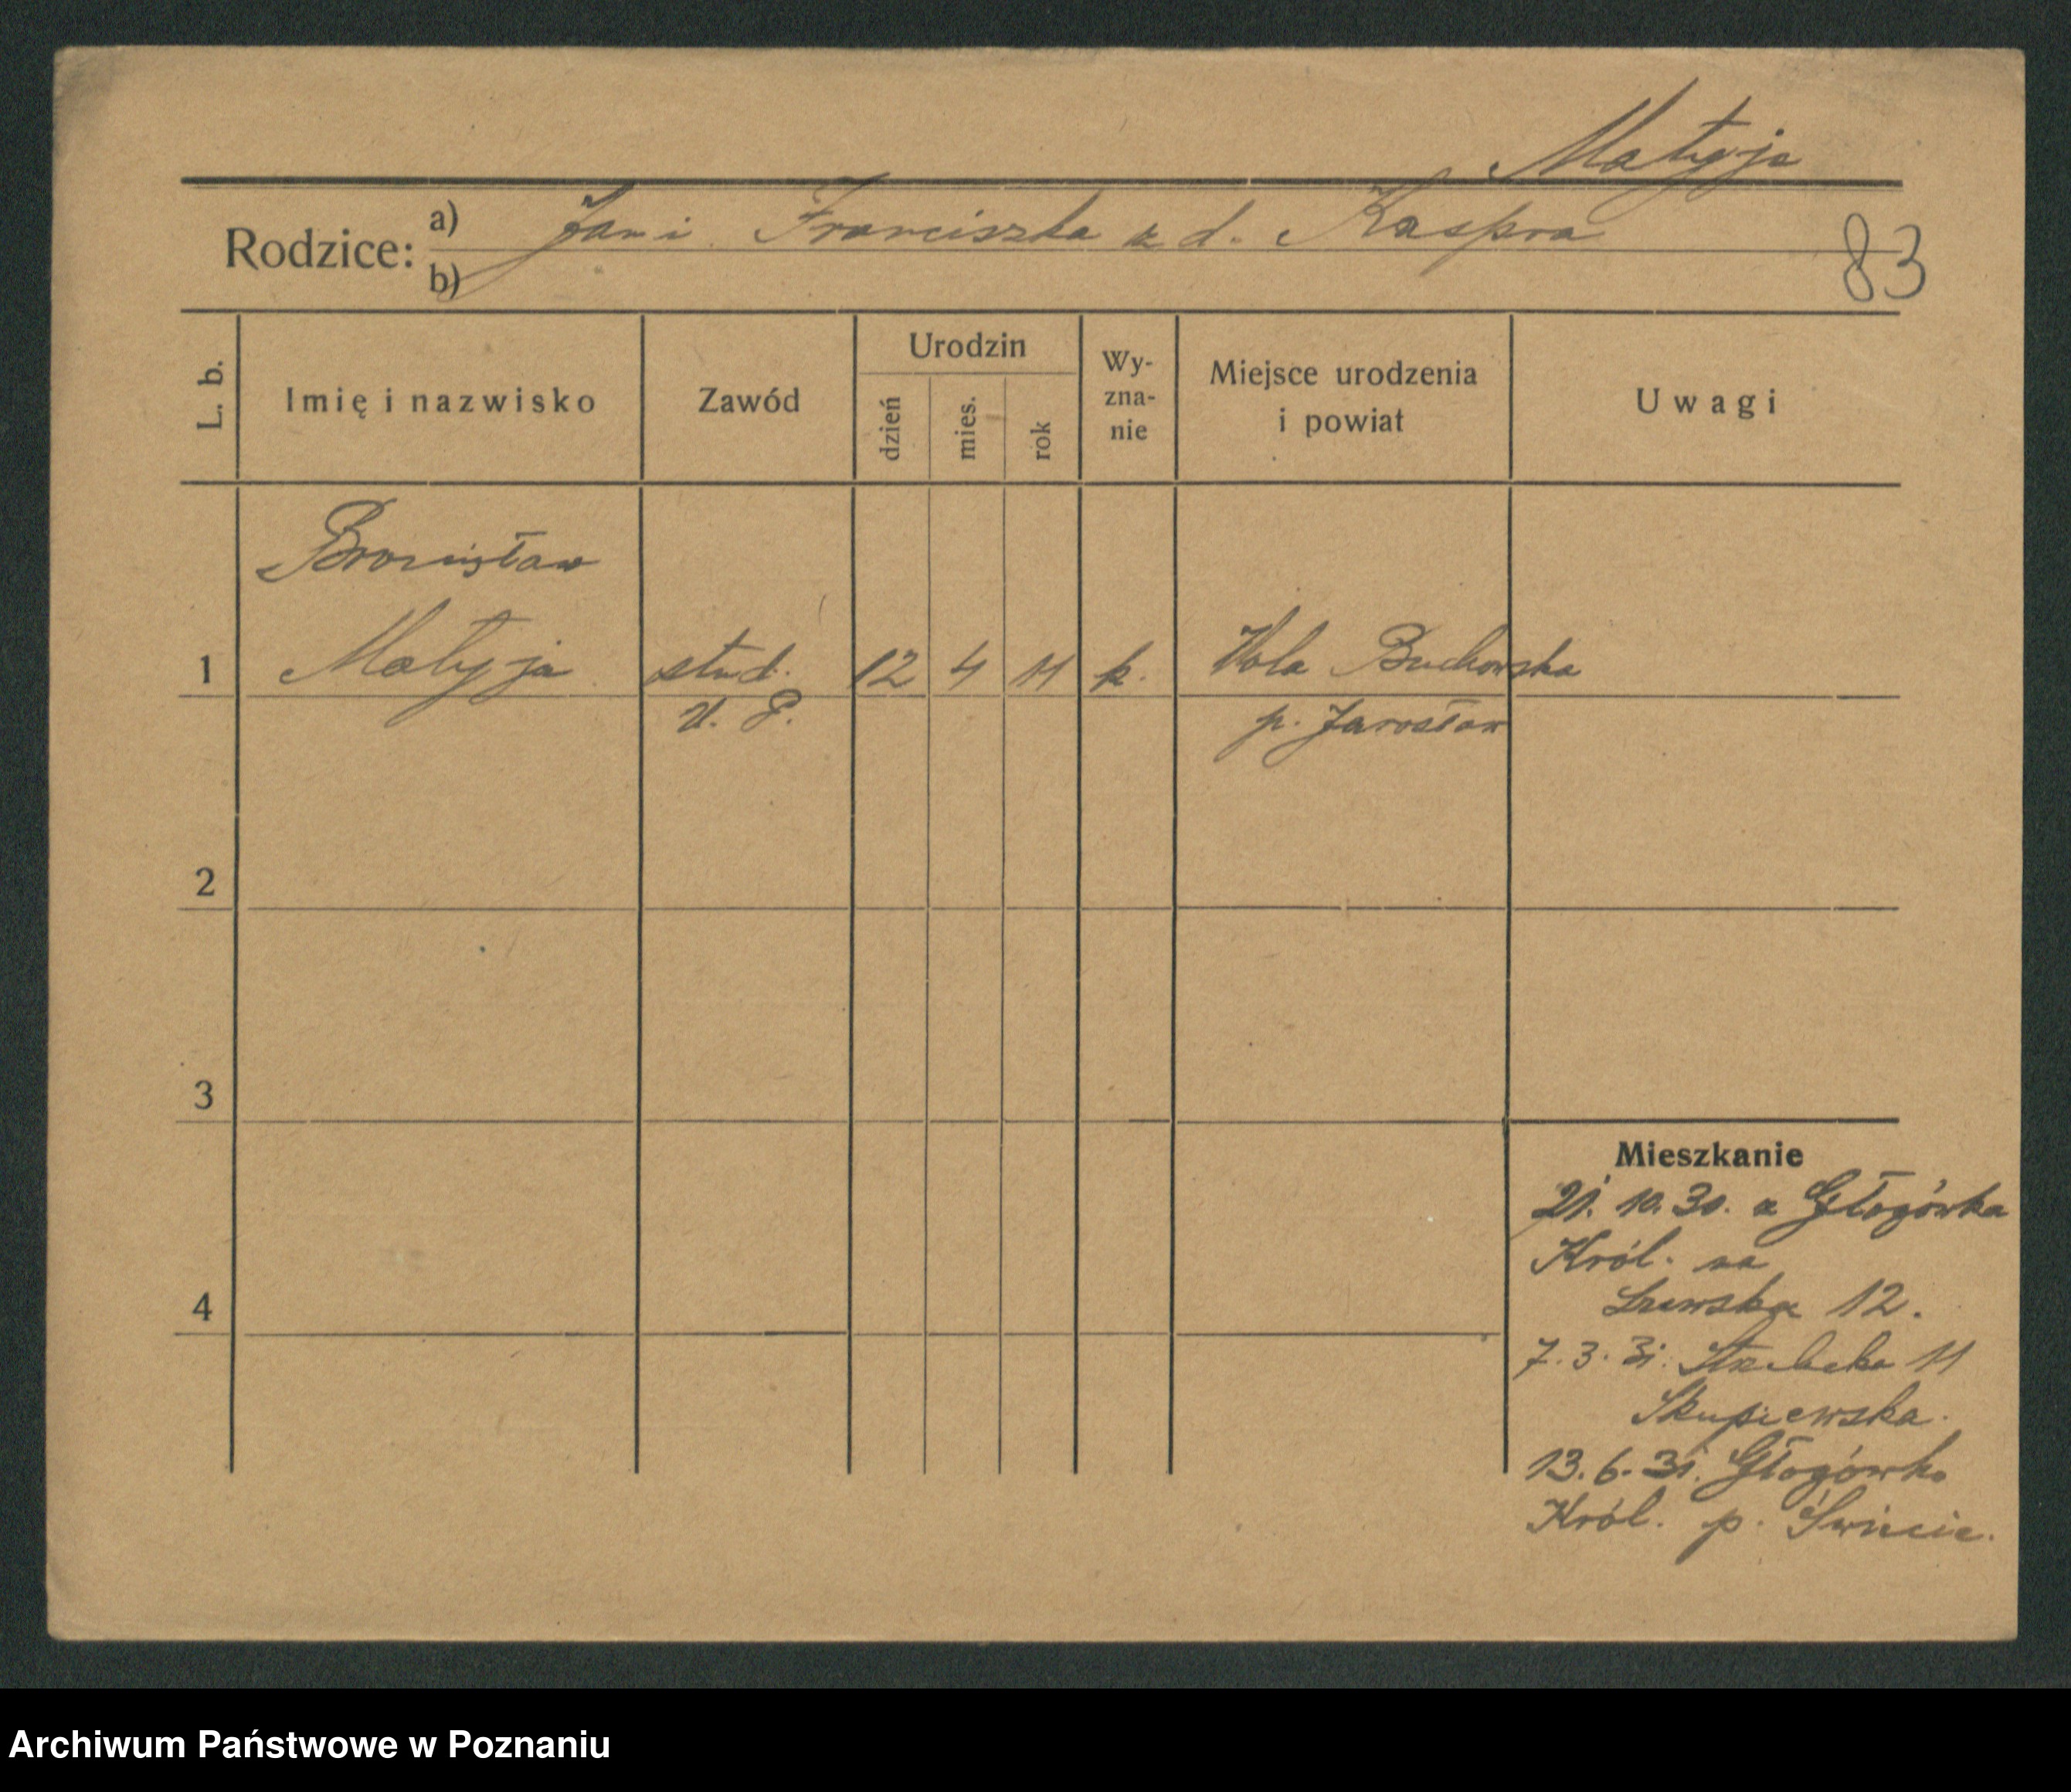 Matyja
Rodzice: a) Jan i Franciszka z d. Kaspra
b)
83
L. b.
Imię i nazwisko
Zawód
Urodzin
dzień
mies.
rok
Wy-
zna-
nie
Miejsce urodzenia
i powiat
Uwagi
Bronisław
1 Matyja stud. 12 4 11 k. Wola Buchowska
U. P. p. Jarosław
2
3
4
Mieszkanie
21. 10. 30. z Głogówka
Król. na
12.
7. 3. 31. 11
Skupiewska.
13. 6. 31. Głogówko
Król. p. Świecie.
Archiwum Państwowe w Poznaniu